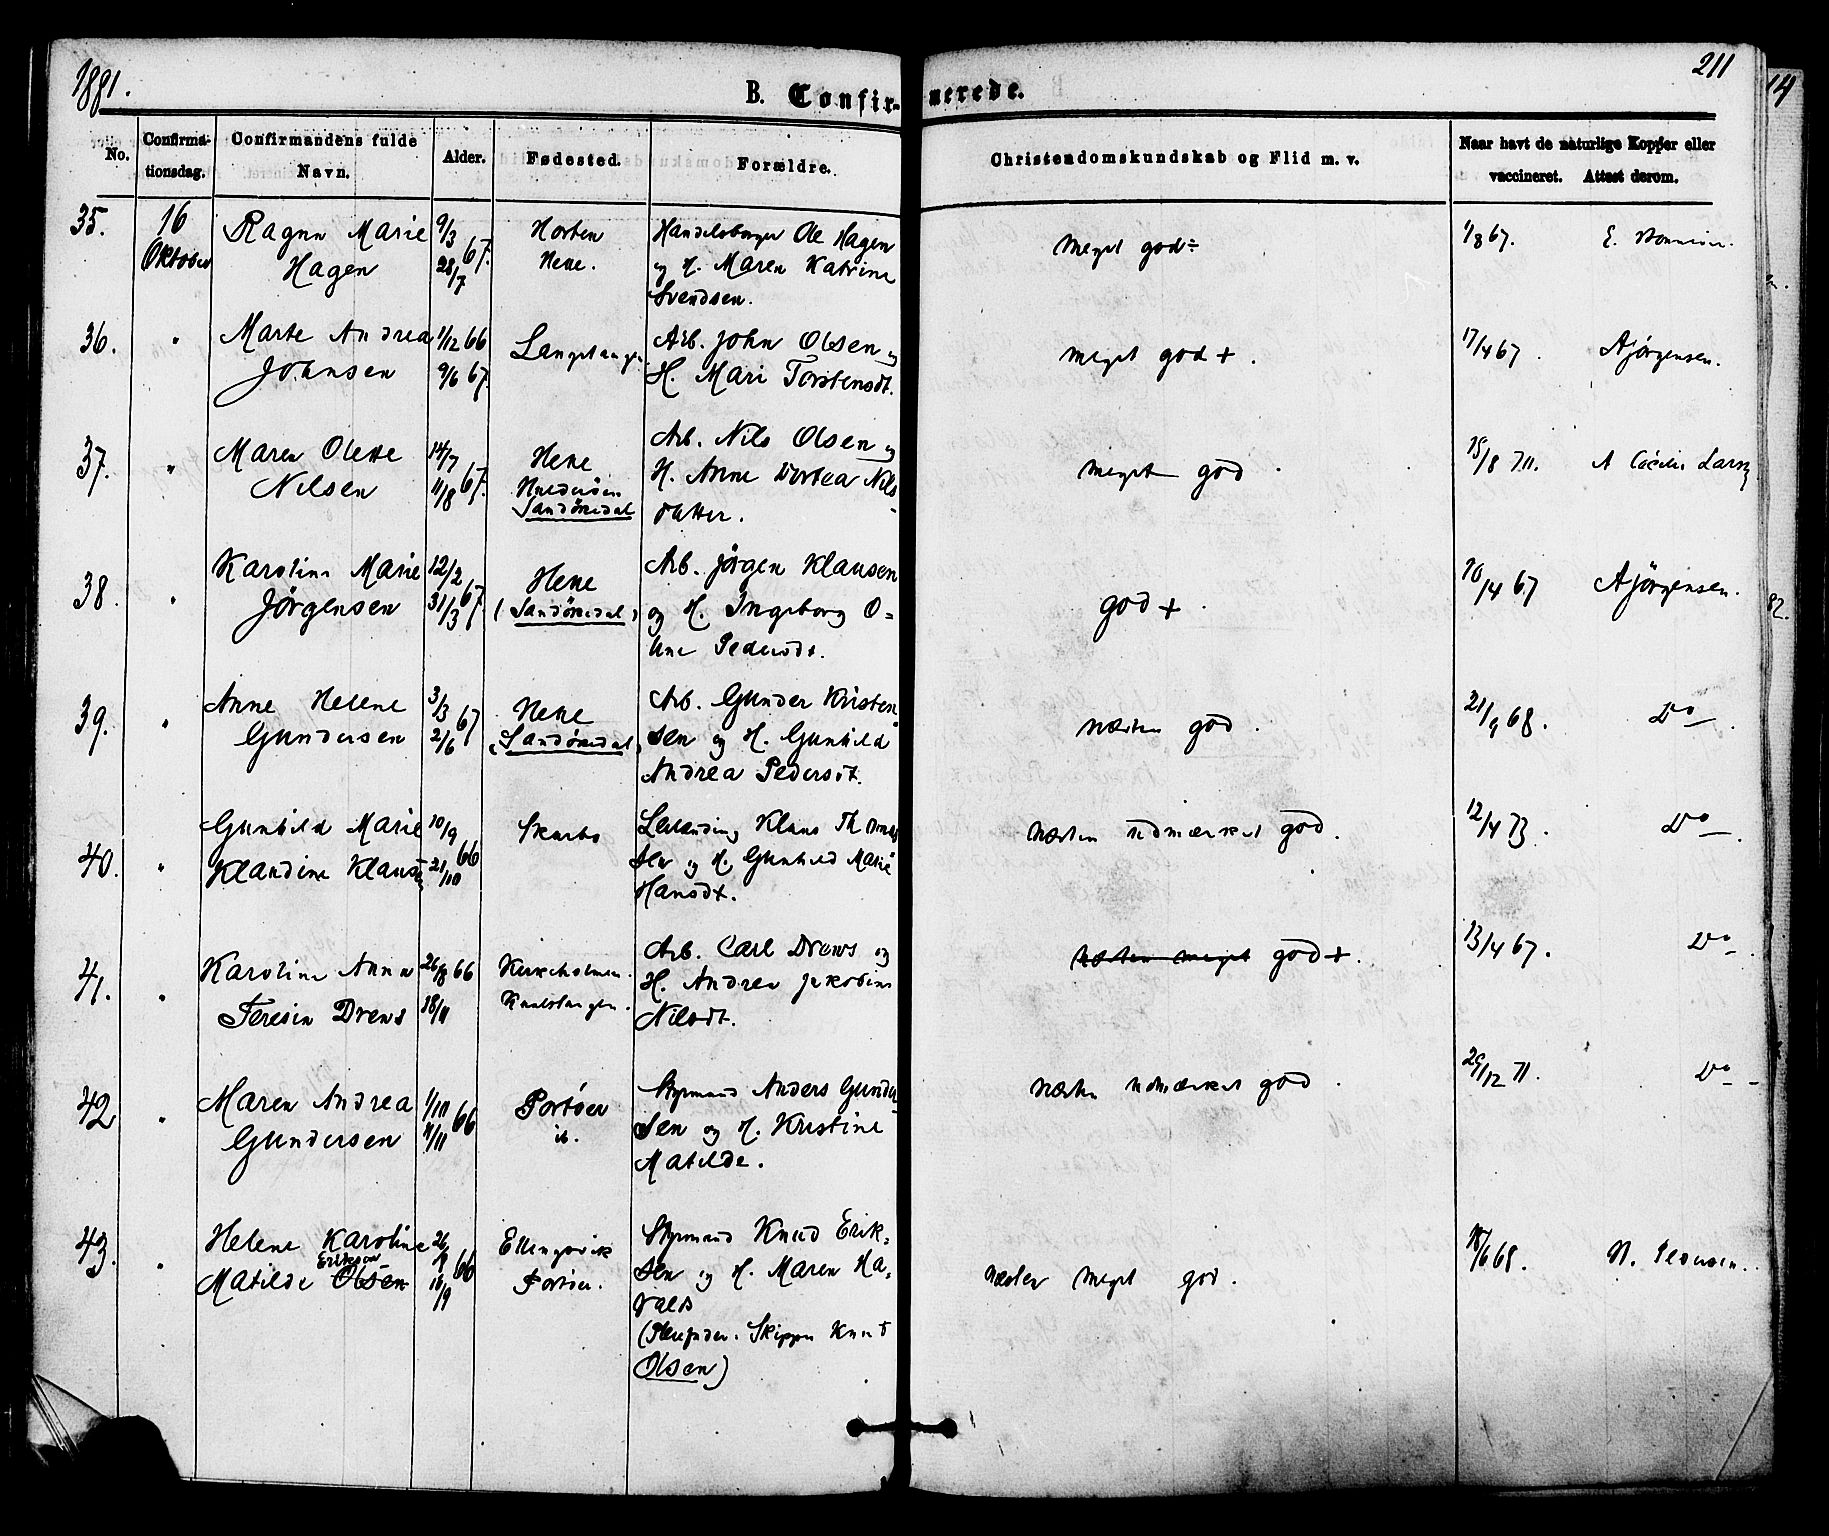 1881.
211
B. Confirmerede.
No.
Confirma-
tionsdag.
Confirmandens fulde
Navn.
Alder.
Fødested.
Forældre.
Christendomskundskab og Flid m. v.
Naar havt de naturlige Kopper eller
vaccineret. Attest derom.
35. 16 Oktober
Ragna Marie
Hagen
9/3 67.
28/7
Horten
Helle.
Ole Hagen
og H. Maren Katrine
Svendsen.
Meget god÷
1/8 67.
E.
36. "
Marte Andrea
Johnsen
1/12 66
9/6 67.
Arb. John Olsen og
H. Mari Torstensdt.
meget god + .
17/4 67.
AJörgensen.
37. "
Maren Olette
Nilsen
14/7 67.
11/8
Helle
Sandökedal
Arb. Nils Olsen og
H. Anne Dortea Nils
datter.
meget god .
15/8 70.
38. "
Karoline Marie
Jörgensen
12/2 67
31/3
Helle
(Sandökedal)
Arb. Jörgen Klausen
og H. Ingeborg O-
line Pedersdt.
god + .
10/4 67
AJörgensen.
39. "
Anne Helene
Gundersen
3/3 67
2/6
Helle
(Sandökedal)
Arb. Gunder Kristen
sen og H. Gunhild
Andrea Pedersdt.
næsten god .
21/9 68.
Do
40. "
Gunhild Marie
Klandine Klausen
10/9 66
21/10
Klaus
sen og H. Gunhild Marie
Hansdt.
næsten udmærket god .
12/4 73.
Do
41. "
Karoline Anna
Teresia Drews
26/8 66
18/11
Arb. Carl Drews og
H. Andrea Jakobine
Nilsdt.
næsten meget god + .
13/4 67.
Do
42. "
Maren Andrea
Gundersen
1/10 66
11/11
Portöer
ib.
Styrmand Anders Gunder
sen og H. Kristine
Matilde.
næsten udmærket god .
29/12 71.
Do
43. "
Helene Karoline
Eriksen
Matilde Olsen
66
Ellingsvik
Portöer.
Styrmand Knud Erik-
sen og H. Maren Ha-
valds
(Pleiefader. Skipper Knut
Olsen)
næsten meget god .
68.
N. Pedersen.